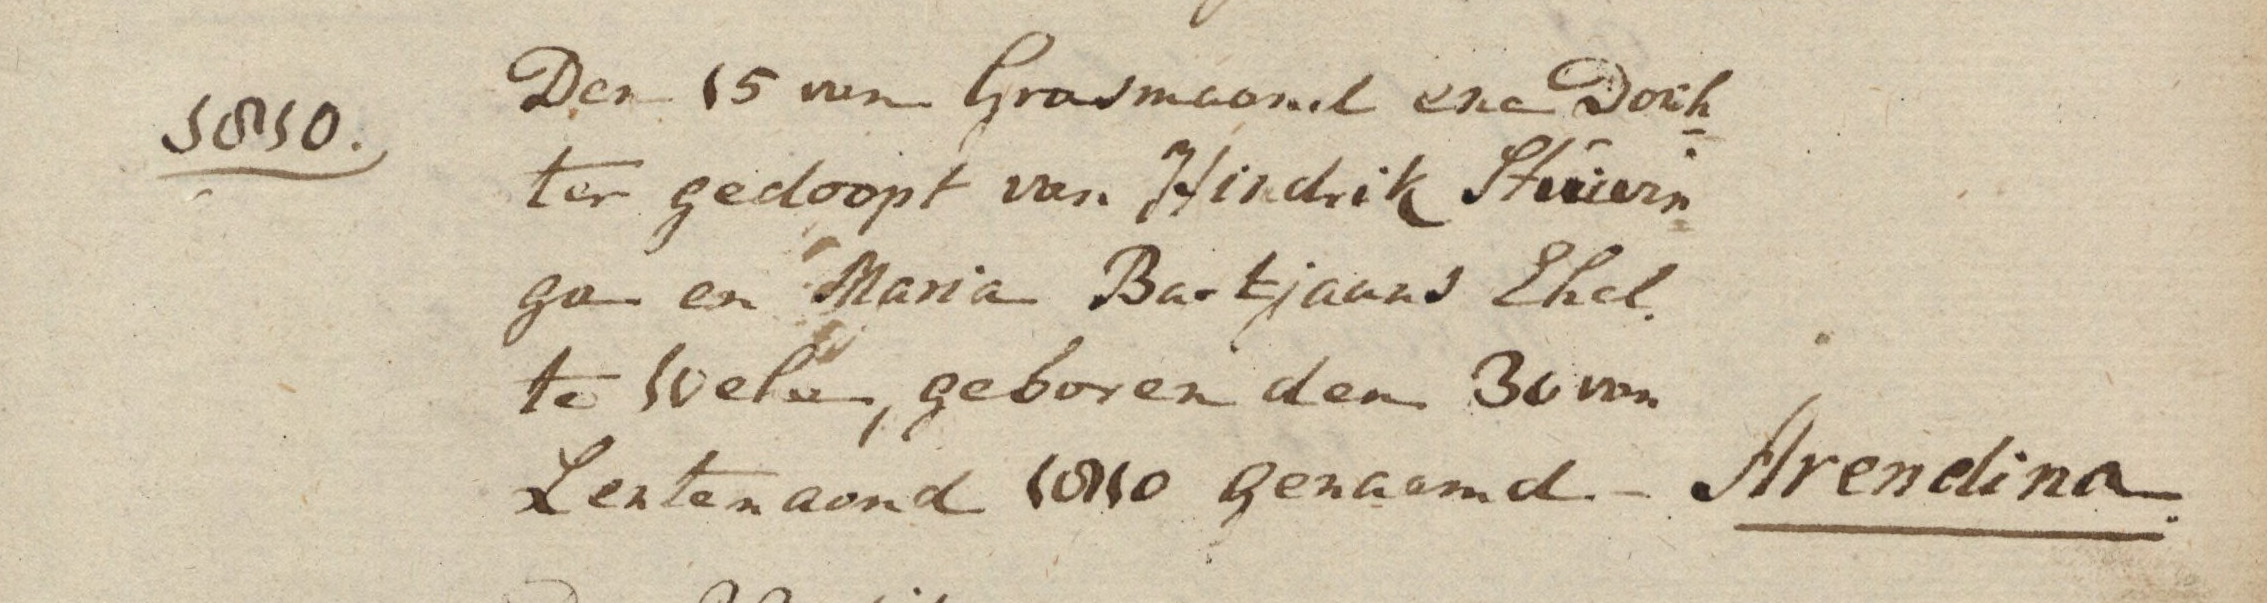 1810.
Den 15 van Grasmaand ene Doch
ter gedoopt van Hindrik Stuivin
ga en Maria Bartjaans Ehel.
te Wehe, geboren den 30 van
Lentenaand 1810 genaamd - Arendina.